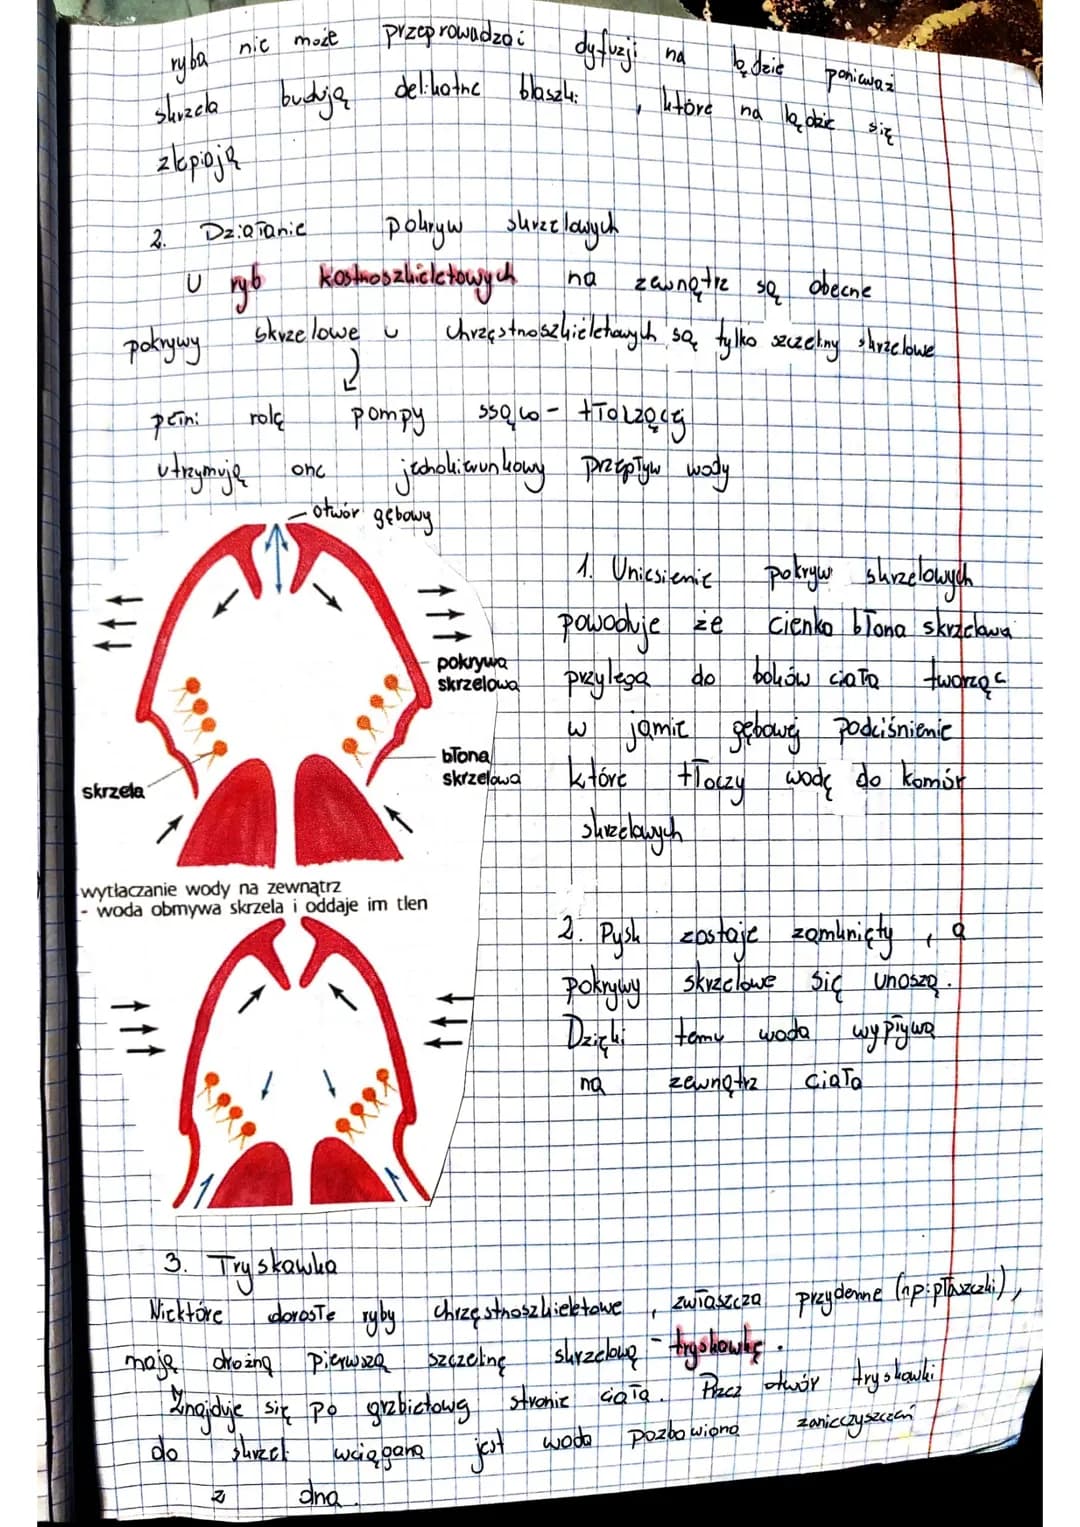 ryba nie może przeprowadzać dyfuzji na lądzie ponieważ
skrzela budują delikatne blaszki, które na lądzie się
zlepiają
2. Działanie pokryw skrzelowych
U ryb kostnoszkieletowych na zewnątrz są obecne
pokrywy skrzelowe u chrzęstnoszkieletowych są tylko szczeliny skrzelowe
pełni rolę pompy ssąco-tłoczącej
utrzymują one jednokierunkowy przepływ wody
otwór gębowy
1. Uniesienie pokryw skrzelowych
powoduje że cienka błona skrzelowa
przylega do boków ciała tworząc
w jamie gębowej podciśnienie
które tłoczy wodę do komór
skrzelowych
pokrywa
skrzelowa
błona
skrzelowa
skrzela
wytłaczanie wody na zewnątrz
- woda obmywa skrzela i oddaje im tlen
2. Pysk zostaje zamknięty, a
pokrywy skrzelowe się unoszą.
Dzięki temu woda wypływa
na zewnątrz ciała
3. Tryskawka
Niektóre dorosłe ryby chrzęstnoszkieletowe, zwłaszcza przydenne (np: płaszczki),
mają drożną pierwszą szczelinę skrzelową - tryskawkę.
Znajduje się po grzbietowej stronie ciała. Przez otwór tryskawki
do skrzel wciągana jest woda pozbawiona zanieczyszczeń
z dna.